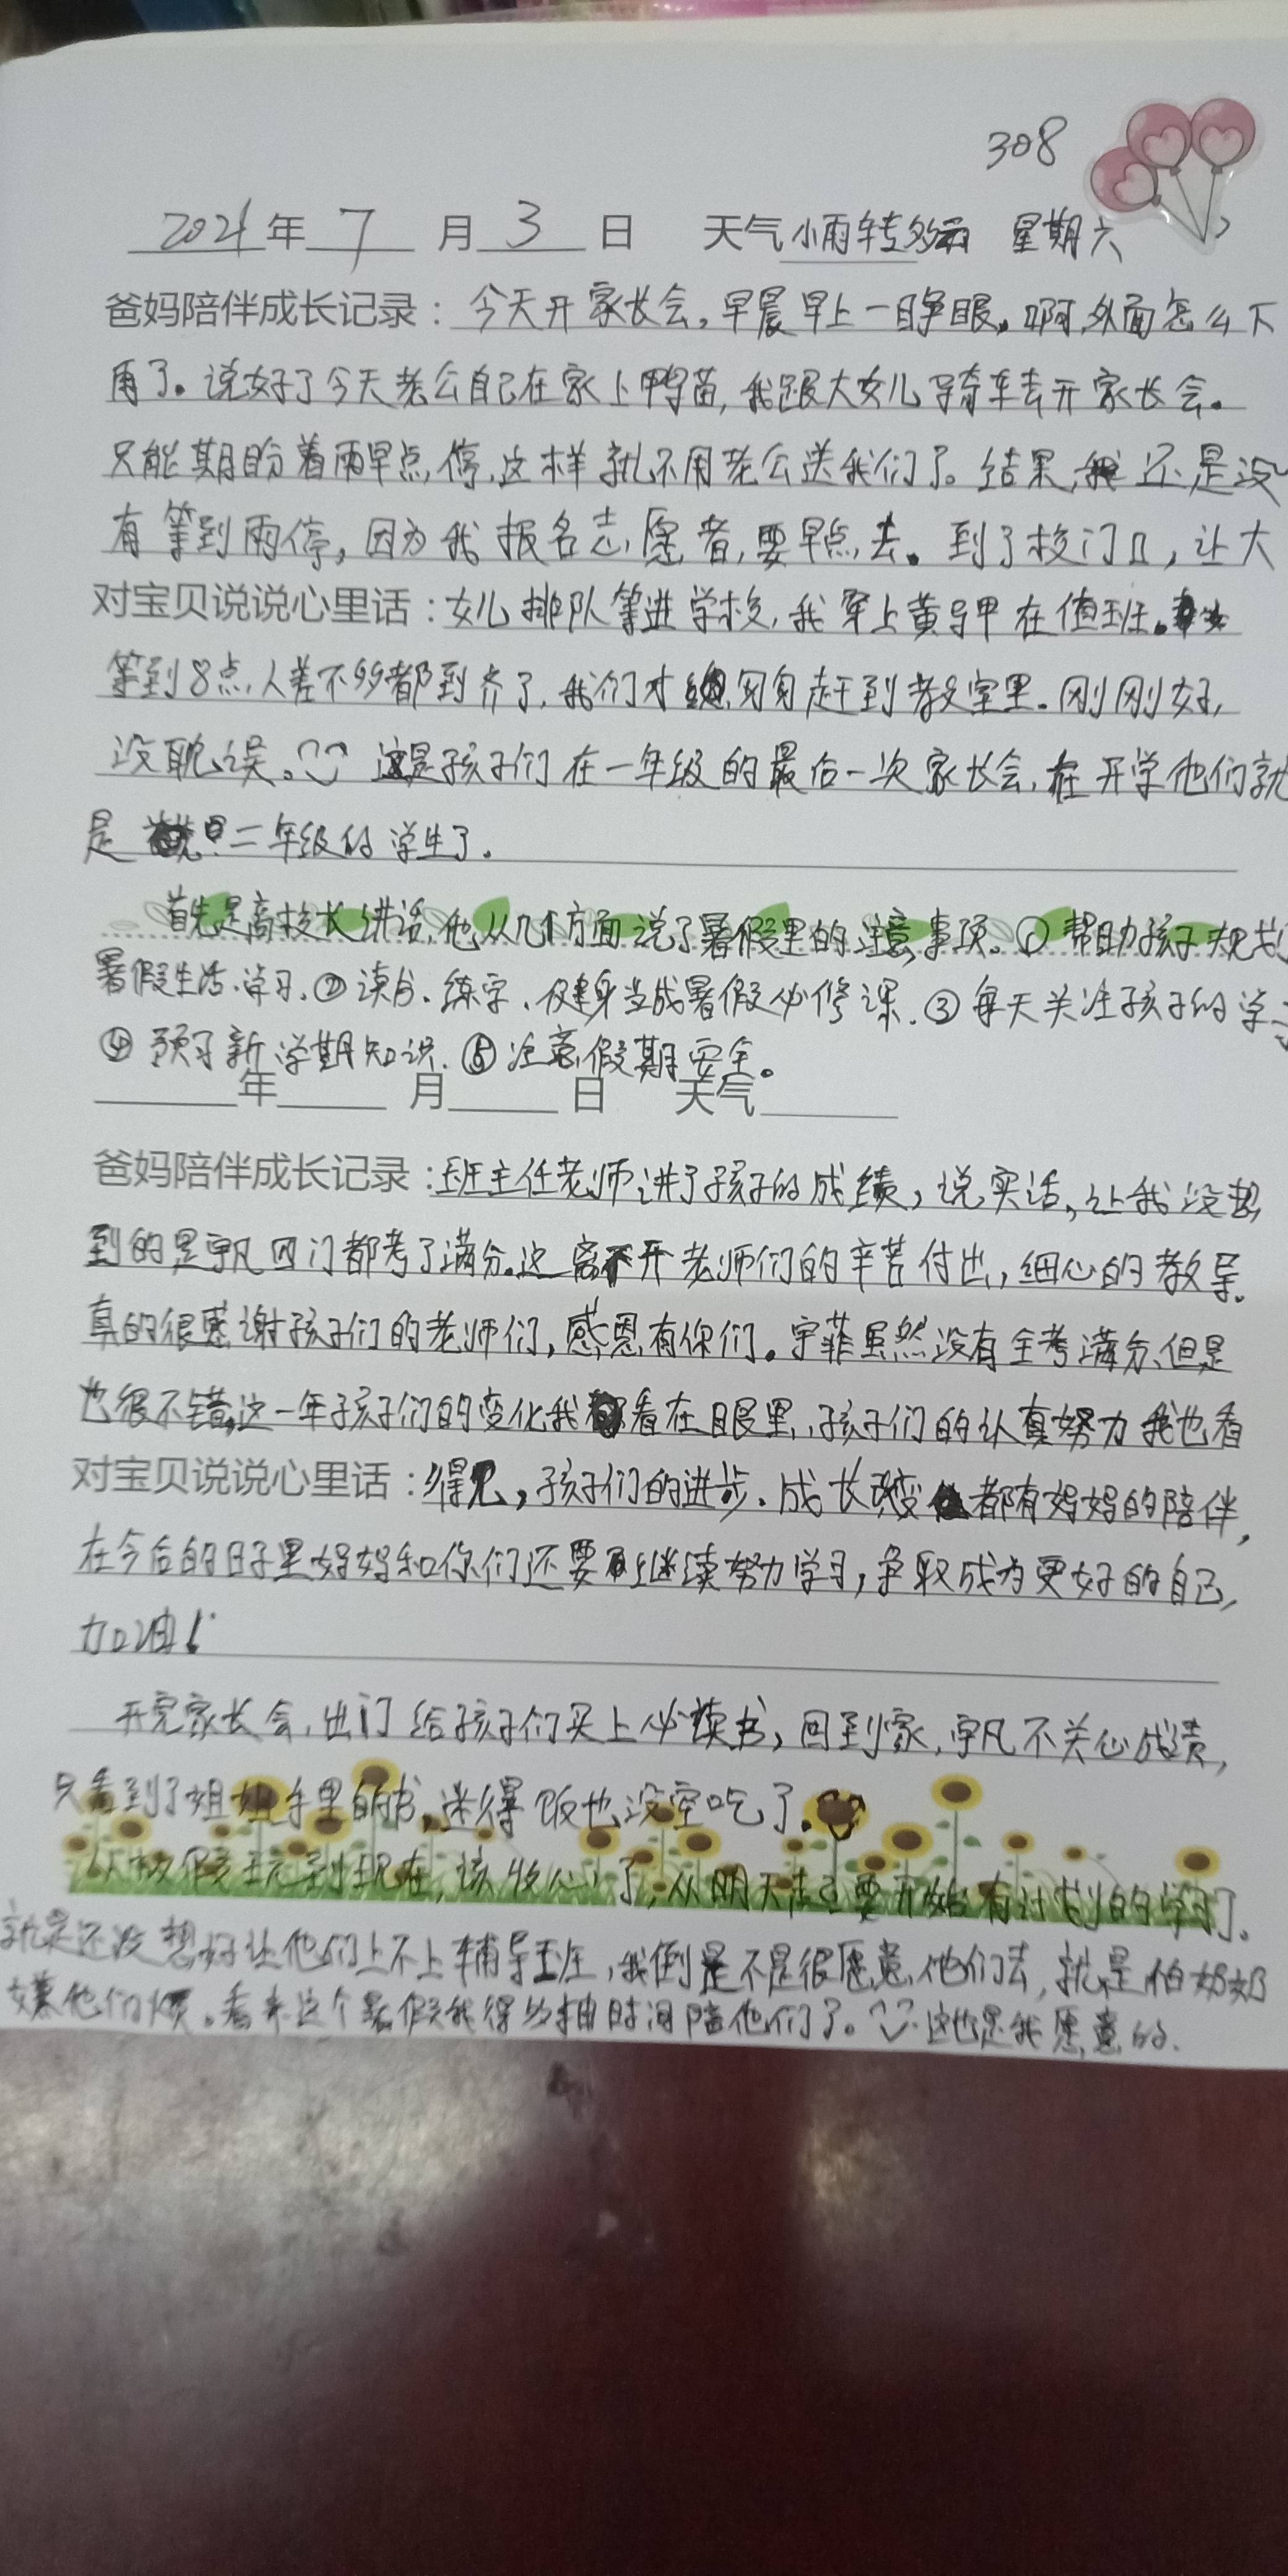 308
2021年 7 月 3 日 天气 小雨转多云 星期六
爸妈陪伴成长记录：今天开家长会，早晨早上一睁眼，啊，外面怎么下
雨了。说好了今天老公自己在家上鸭苗，我跟大女儿骑车去开家长会。
只能期盼着雨早点停，这样就不用老公送我们了。结果，我还是没
有等到雨停，因为我报名志愿者，要早点去。到了校门口，让大
对宝贝说说心里话：女儿排队等进学校，我穿上黄马甲在值班。
等到8点，人差不多都到齐了，我们才匆匆赶到教室里。刚刚好，
没耽误。这是孩子们在一年级的最后一次家长会，在开学他们就
是二年级的学生了。
首先是高校长讲话，他从几个方面说了暑假里的注意事项。①帮助孩子规划
暑假生活、学习、②读书、练字、健身当成暑假必修课、③每天关注孩子的学习
④预习新学期知识、⑤注意假期安全。
年 月 日 天气
爸妈陪伴成长记录：班主任老师讲了孩子的成绩，说实话，让我没想
到的是宇凡四门都考了满分。这离不开老师们的辛苦付出，细心的教导。
真的很感谢孩子们的老师们，感恩有你们。宇菲虽然没有全考满分、但是
也很不错，这一年孩子们的变化我都看在眼里，孩子们的认真努力我也看
对宝贝说说心里话：得见，孩子们的进步、成长改变都有妈妈的陪伴，
在今后的日子里妈妈和你们还要继续努力学习，争取成为更好的自己，
加油！
开完家长会，出门给孩子们买上必读书，回到家，宇凡不关心成绩，
只看到了姐姐手里的书，迷得饭也没空吃了。
从放假玩到现在，该收心了，从明天起要开始有计划的学习了。
就是还没想好让他们上不上辅导班，我倒是不是很愿意他们去，就是怕奶奶
嫌他们烦。看来这个暑假我得多抽时间陪他们了。这也是我愿意的.